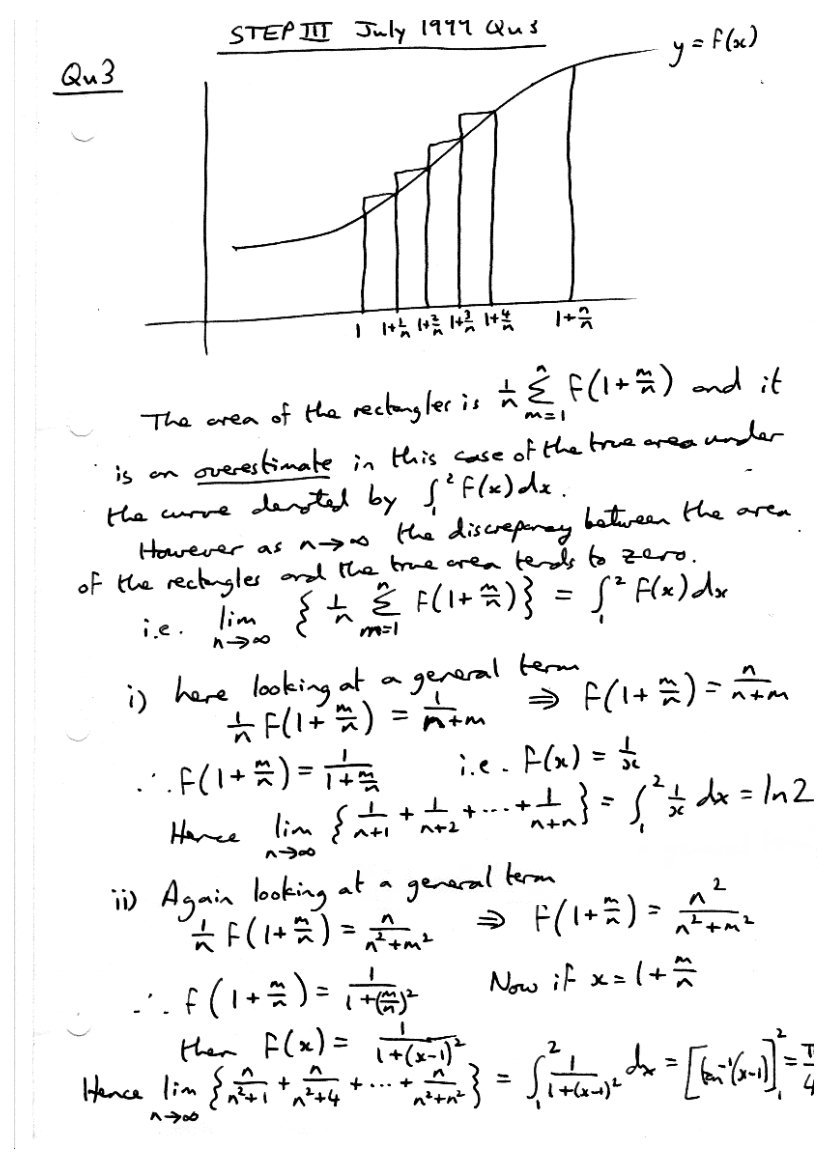 STEP III July 1999 Qu3
Qu3
y = f(x)
1 1+1/n 1+2/n 1+3/n 1+4/n 1+n/n
The area of the rectangles is 1/n ∑_{m=1}^{n} f(1+m/n) and it
is an overestimate in this case of the true area under
the curve denoted by ∫_1^2 f(x) dx.
However as n→∞ the discrepancy between the area
of the rectangles and the true area tends to zero.
i.e. lim_{n→∞} { 1/n ∑_{m=1}^{n} f(1+m/n) } = ∫_1^2 f(x) dx
i) here looking at a general term
1/n f(1+m/n) = 1/(n+m) ⇒ f(1+m/n) = n/(n+m)
∴ f(1+m/n) = 1/(1+m/n) i.e. f(x) = 1/x
Hence lim_{n→∞} { 1/(n+1) + 1/(n+2) + ... + 1/(n+n) } = ∫_1^2 1/x dx = ln 2
ii) Again looking at a general term
1/n f(1+m/n) = n/(n²+m²) ⇒ f(1+m/n) = n²/(n²+m²)
∴ f(1+m/n) = 1/(1+(m/n)²) Now if x = 1+m/n
then f(x) = 1/(1+(x-1)²)
Hence lim_{n→∞} { n/(n²+1) + n/(n²+4) + ... + n/(n²+n²) } = ∫_1^2 1/(1+(x-1)²) dx = [tan⁻¹(x-1)]_1^2 = π/4